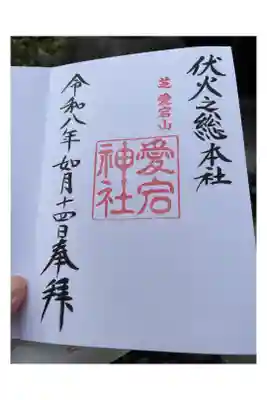 伏火之総本社
芝 愛宕山
愛宕神社
令和八年如月十四日奉拝